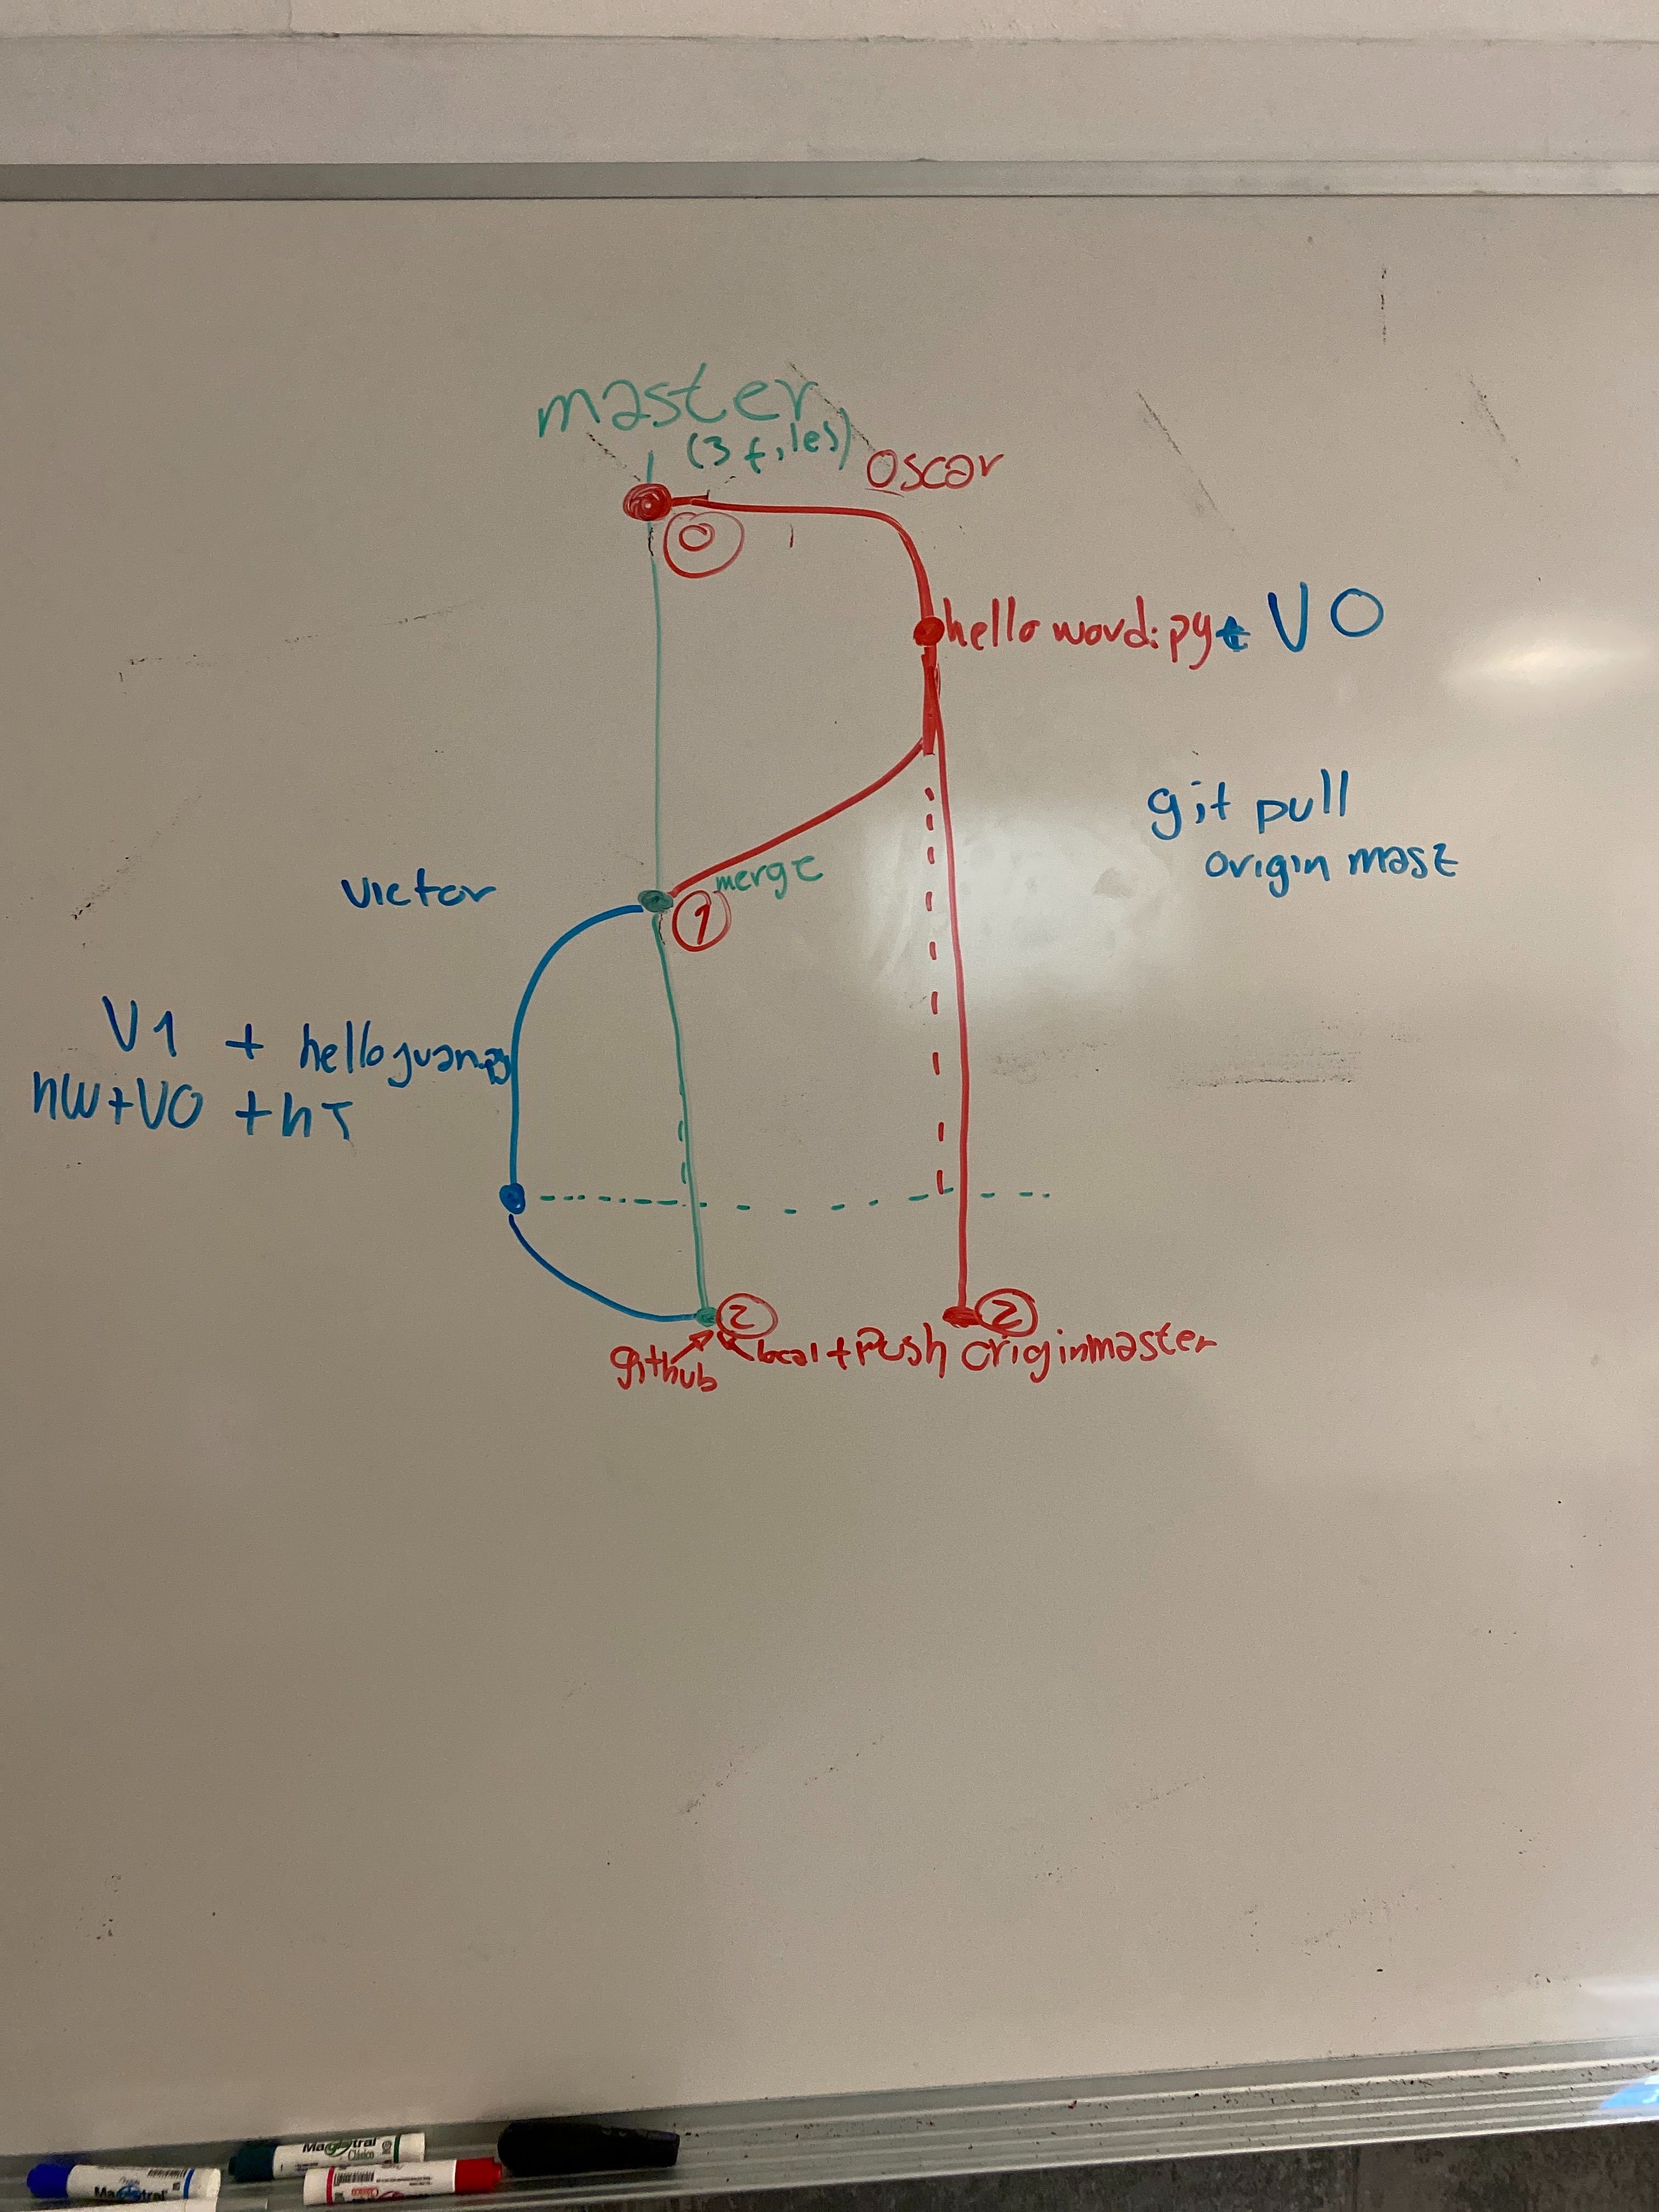 master
(3 files)
Oscar
0
hello word.py + V0
git pull
origin mast
merge
victor
1
V1 + hello juan.py
hW+V0 + hJ
2
2
github
local + Push origin master
Magistral
Clásico
Magistral